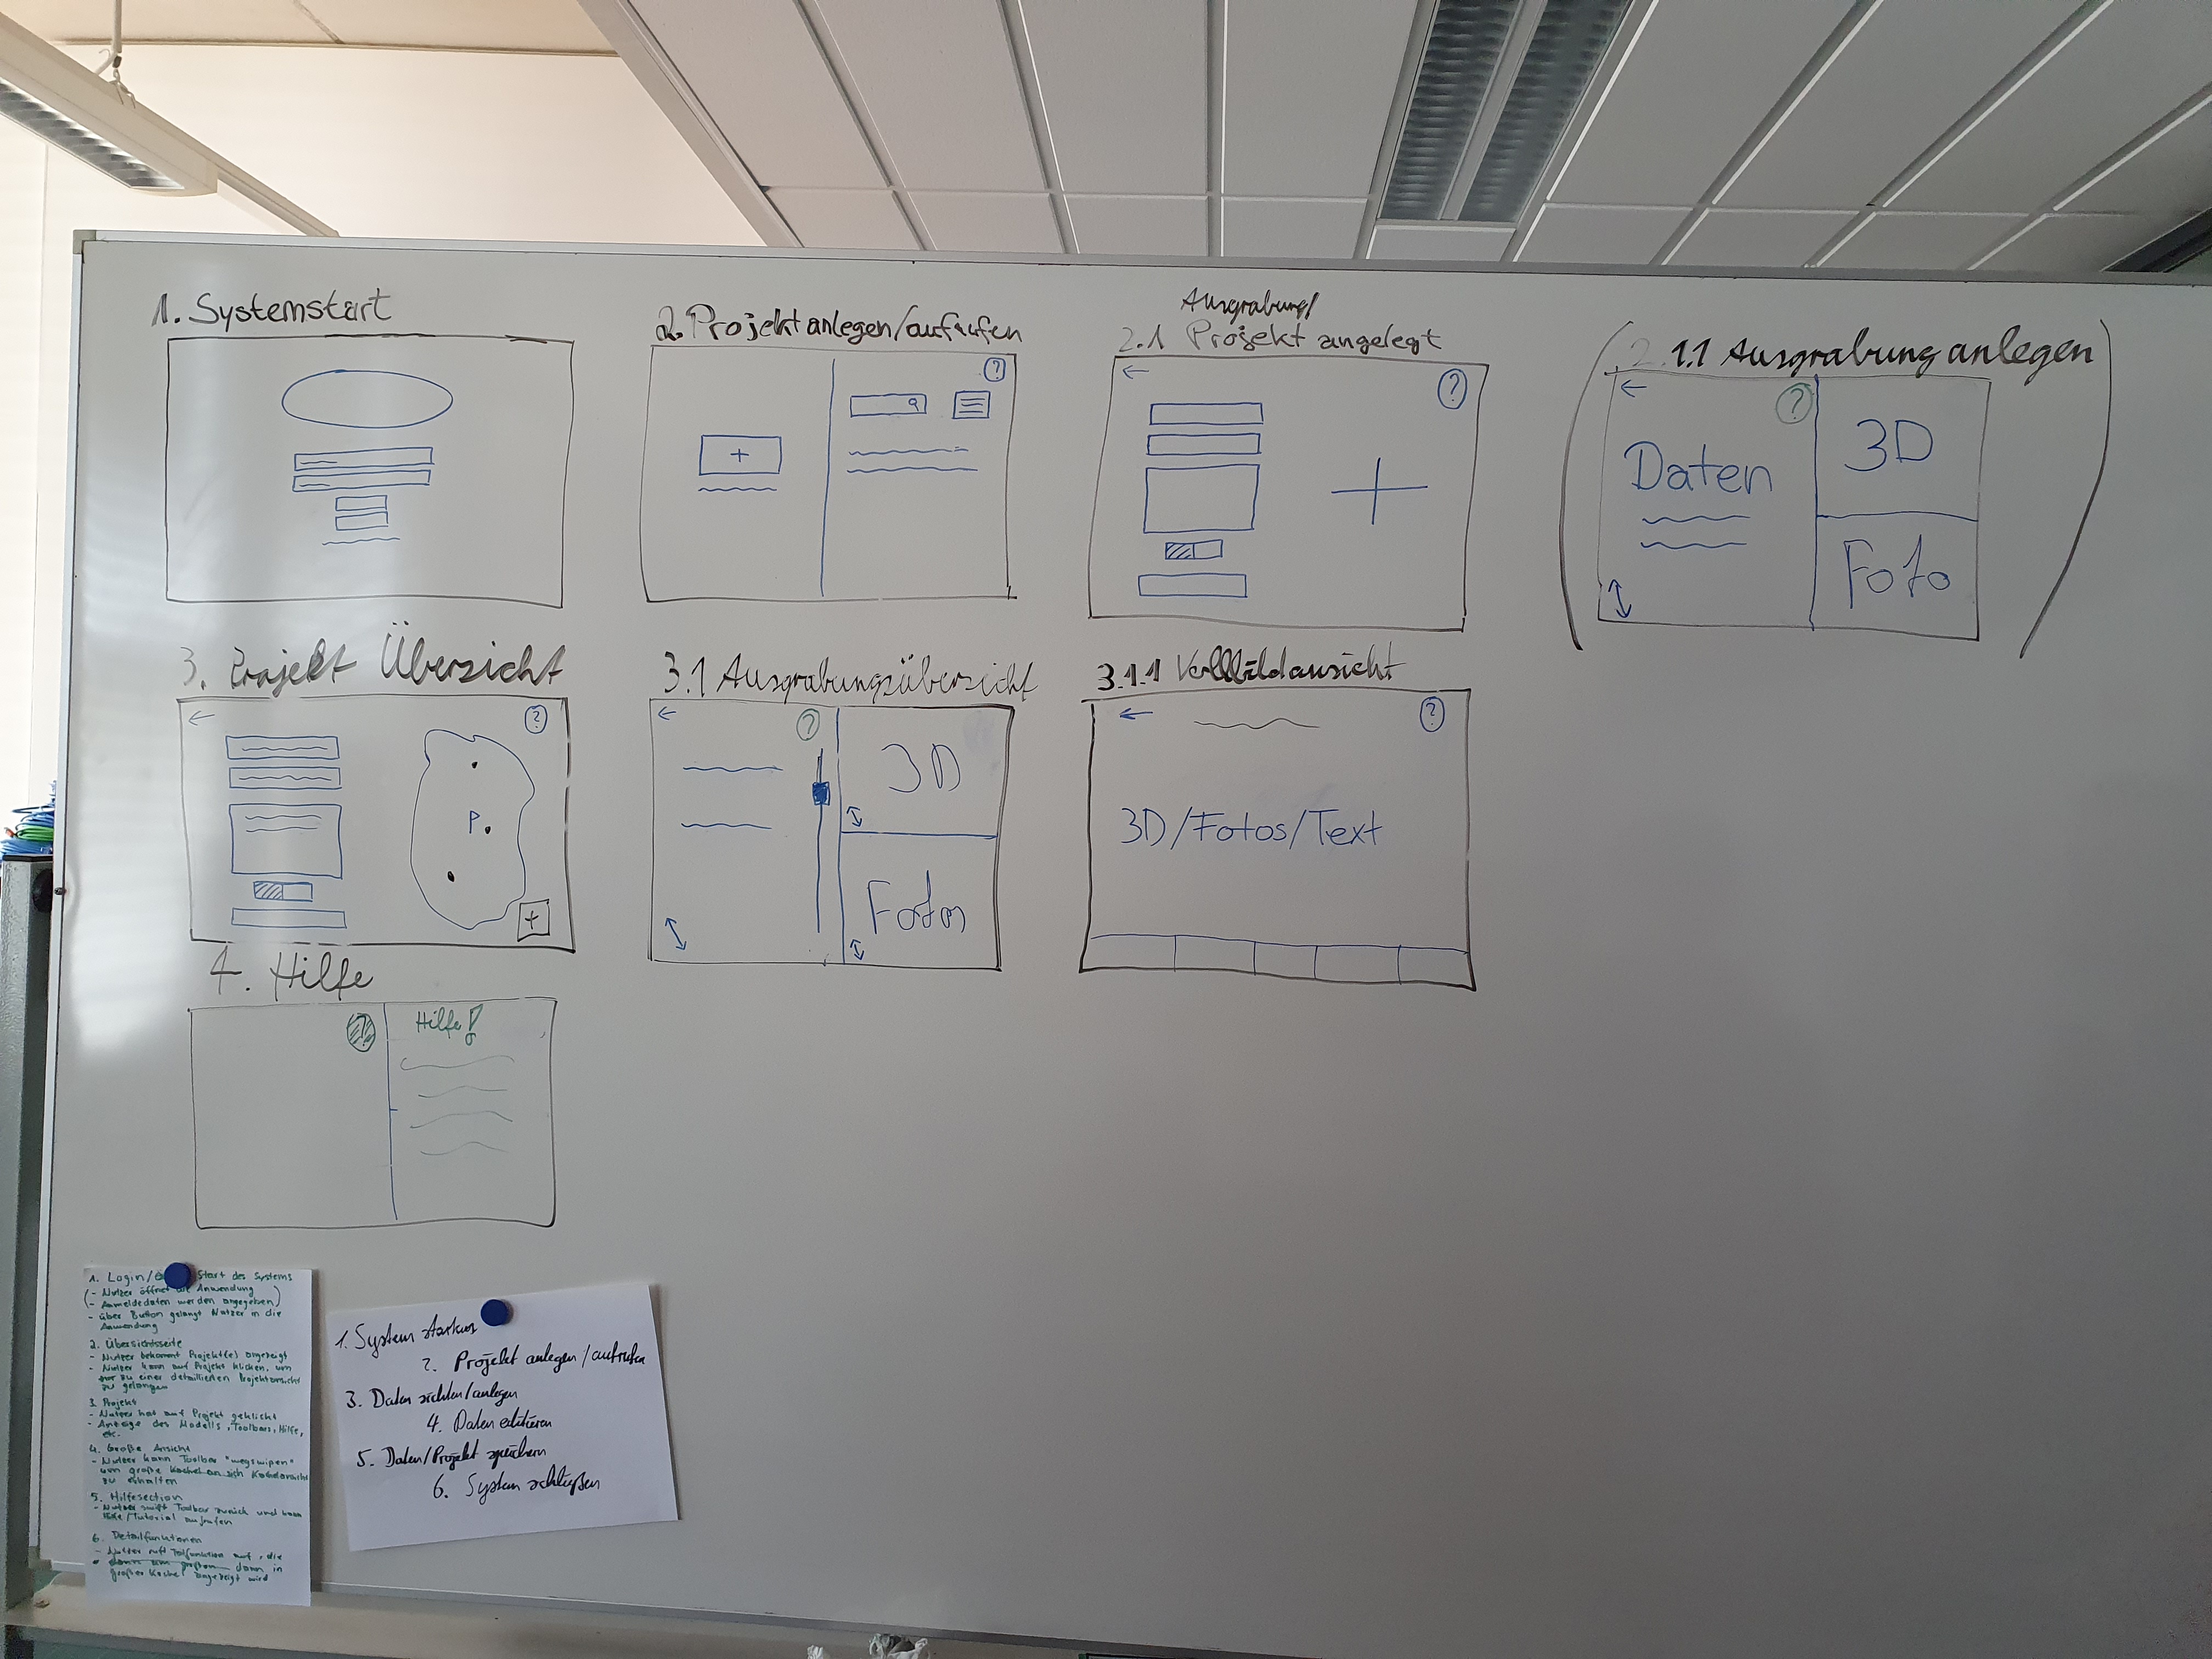 1. Systemstart
2. Projekt anlegen/aufrufen
?
+
Ausgrabung/
2.1 Projekt angelegt
?
2.1.1 Ausgrabung anlegen
?
Daten
3D
Foto
3. Projekt Übersicht
?
P.
+
3.1 Ausgrabungsübersicht
?
3D
Fotos
3.1.1 Vollbildansicht
?
3D/Fotos/Text
4. Hilfe
?
Hilfe!
1. Login/ Start des Systems
(- Nutzer öffnet die Anwendung
(- Anmeldedaten werden angegeben)
- über Button gelangt Nutzer in die
Anwendung
2. Übersichtsseite
- Nutzer bekommt Projekt(e) angezeigt
- Nutzer kann auf Projekt klicken, um
zu einer detaillierten Projektansicht
zu gelangen
3. Projekt
- Nutzer hat auf Projekt geklickt
- Anzeige des Modells, Toolbars, Hilfe,
etc.
4. Große Ansicht
- Nutzer kann Toolbar "wegswipen"
um große Kachelansicht
zu erhalten
5. Hilfesection
- Nutzer swipt Toolbar zurück und kann
Hilfe/Tutorial aufrufen
6. Detailfunktionen
- Nutzer ruft Teilfunktion auf, die
dann in
großer Kachel angezeigt wird
1. System starten
2. Projekt anlegen/aufrufen
3. Daten sichten/anlegen
4. Daten editieren
5. Daten/Projekt speichern
6. System schließen